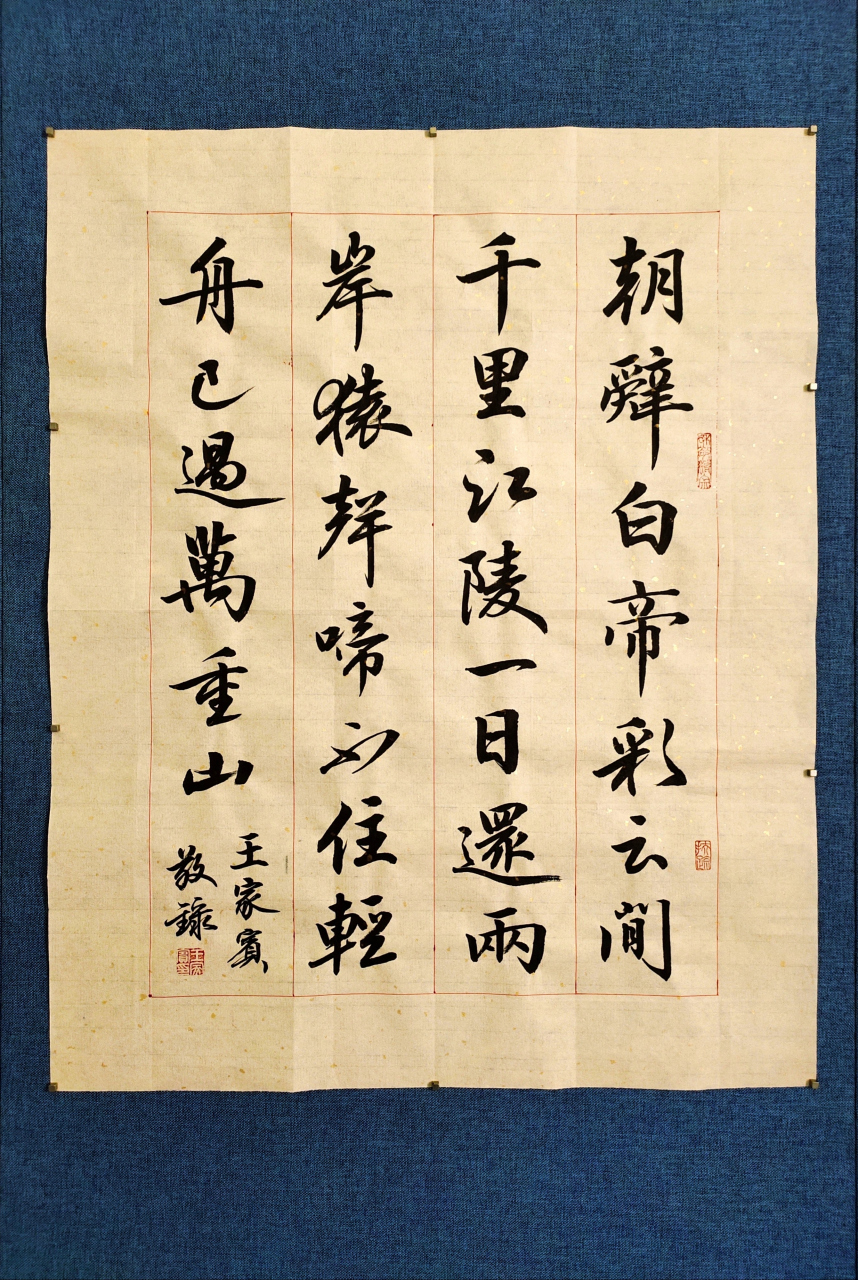 朝辤白帝彩云間
千里江陵一日還兩
岸猿聲啼不住輕
舟已過萬重山
王家賓
敬録